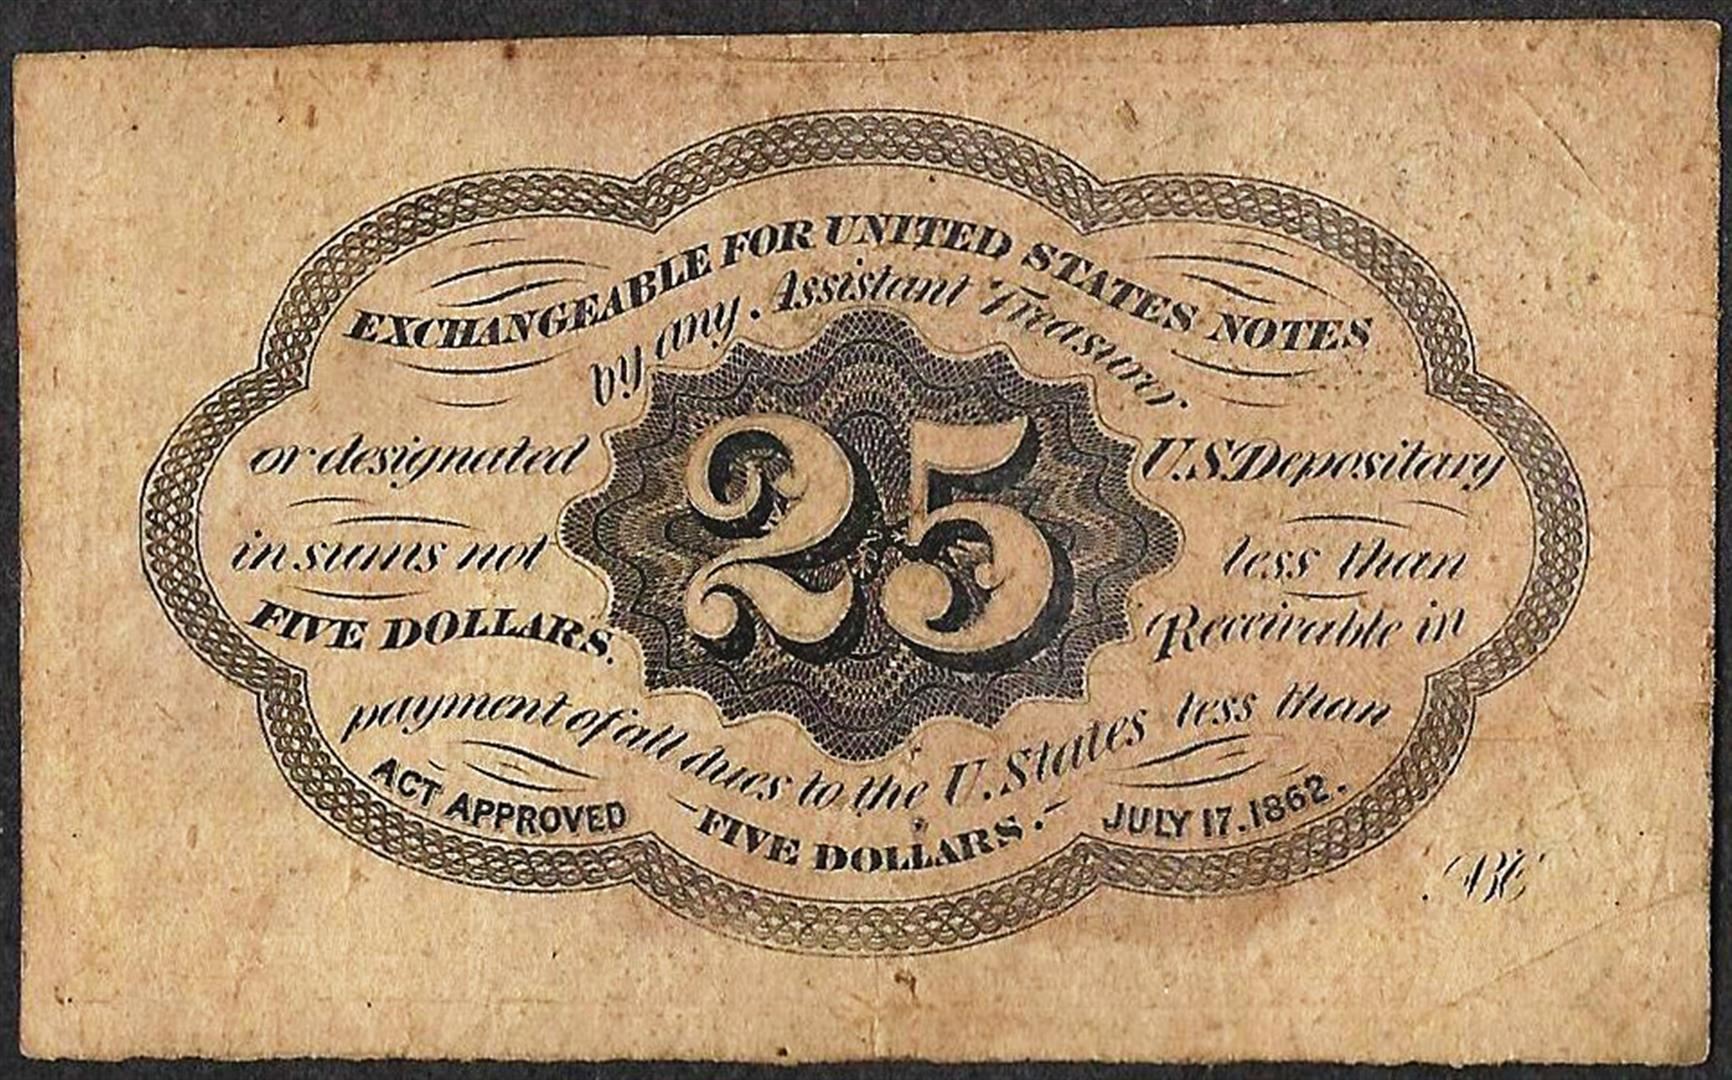 EXCHANGEABLE FOR UNITED STATES NOTES
by any Assistant Treasurer
or designated U.S. Depositary
in sums not less than
FIVE DOLLARS. Receivable in
payment of all dues to the U. States less than
FIVE DOLLARS.
ACT APPROVED JULY 17. 1862.
25